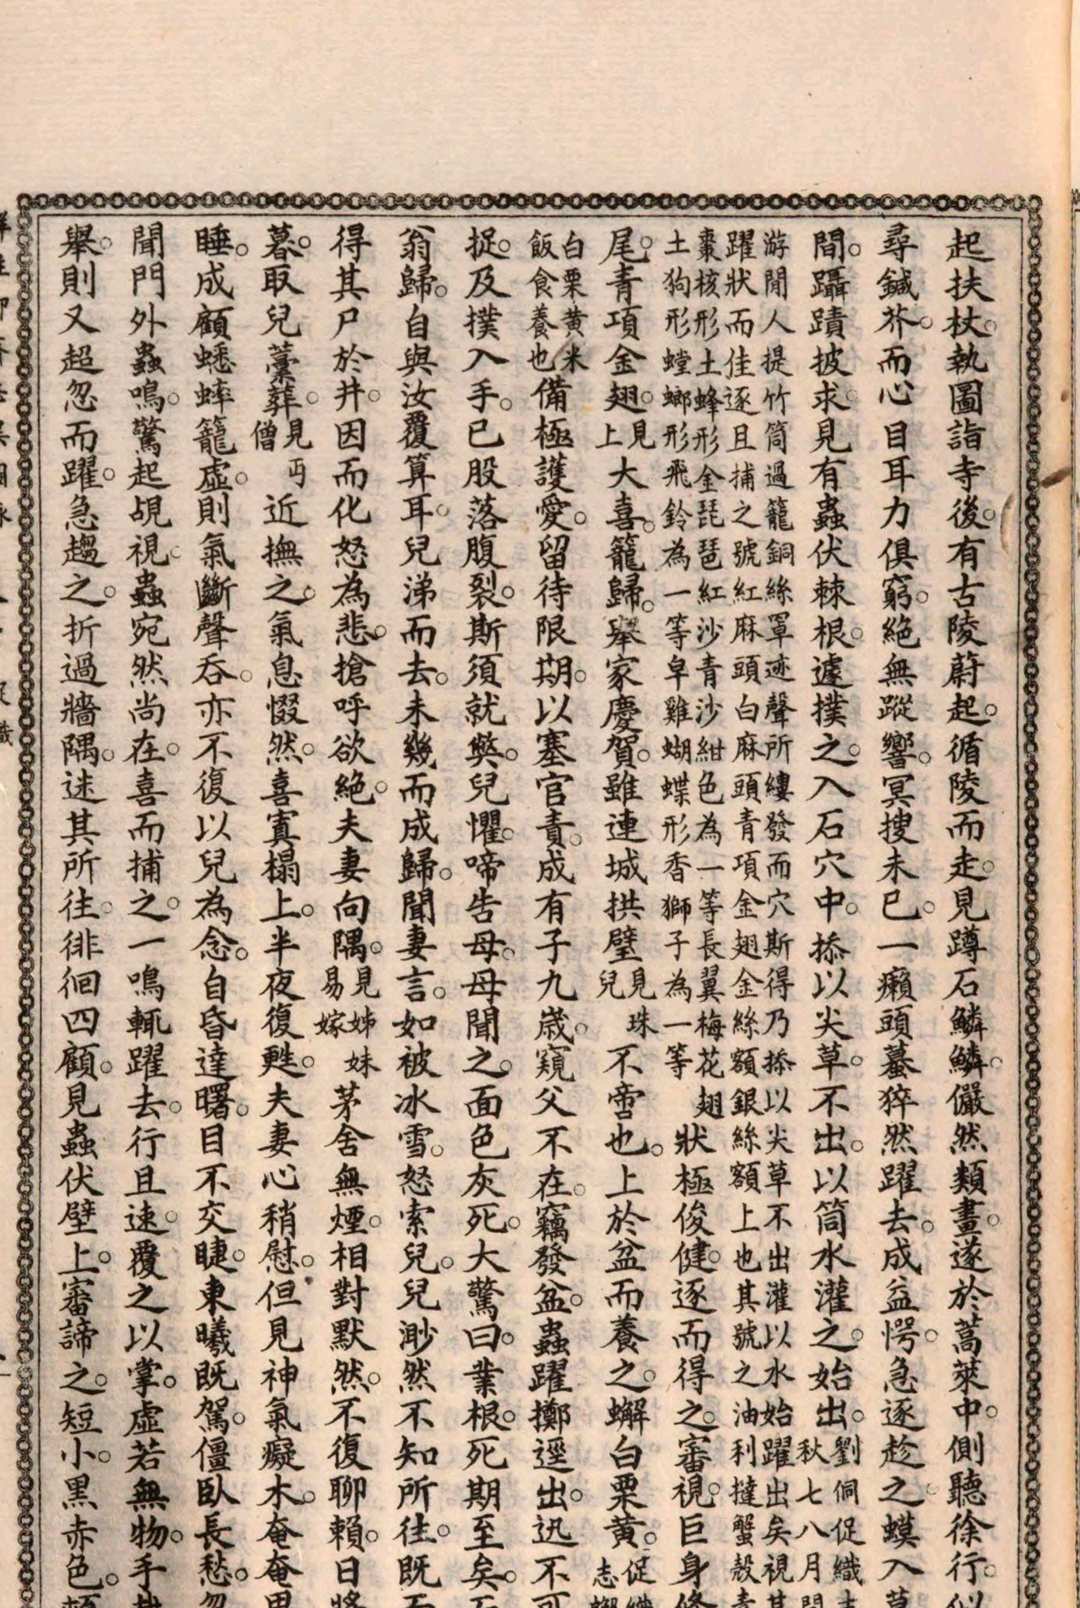 起扶杖執圖詣寺後有古陵蔚起循陵而走見蹲石鱗鱗儼然類畫遂於蒿萊中側聽徐行似
尋鍼芥而心目耳力俱窮絕無蹤響冥搜未已一癩頭蟇猝然躍去成益愕急逐趁之蟆入草
間躡蹟披求見有蟲伏棘根遽撲之入石穴中掭以尖草不出以筒水灌之始出劉侗促織志
秋七八月間
游閒人提竹筒過籠銅絲罩迹聲所縷發而穴斯得乃掭以尖草不出灌以水始躍出矣視其
躍狀而佳逐且捕之號紅麻頭白麻頭青項金翅金絲額銀絲額上也其號之油利撻蟹殼青
棗核形土蜂形金琵琶紅沙青沙紺色為一等長翼梅花翅
土狗形螳螂形飛鈴為一等皁雞蝴蝶形香獅子為一等
狀極俊健逐而得之審視巨身修
尾青項金翅見上大喜籠歸舉家慶賀雖連城拱璧見珠兒不啻也上於盆而養之蠏白栗黃促織志
白栗黃米
飯食養也
備極護愛留待限期以塞官責成有子九歲窺父不在竊發盆蟲躍擲逕出迅不可
捉及撲入手已股落腹裂斯須就斃兒懼啼告母母聞之面色灰死大驚曰業根死期至矣
翁歸自與汝覆算耳兒涕而去未幾而成歸聞妻言如被冰雪怒索兒兒渺然不知所往既而
得其尸於井因而化怒為悲搶呼欲絕夫妻向隅見姊妹易嫁茅舍無煙相對默然不復聊賴日將
暮取兒藁葬見丐僧近撫之氣息惙然喜寘榻上半夜復甦夫妻心稍慰但見神氣癡木奄奄思
睡成顧蟋蟀籠虛則氣斷聲吞亦不復以兒為念自昏達曙目不交睫東曦既駕僵臥長愁忽
聞門外蟲鳴驚起覘視蟲宛然尚在喜而捕之一鳴輒躍去行且速覆之以掌虛若無物手
舉則又超忽而躍急趨之折過牆隅迷其所往徘徊四顧見蟲伏壁上審諦之短小黑赤色